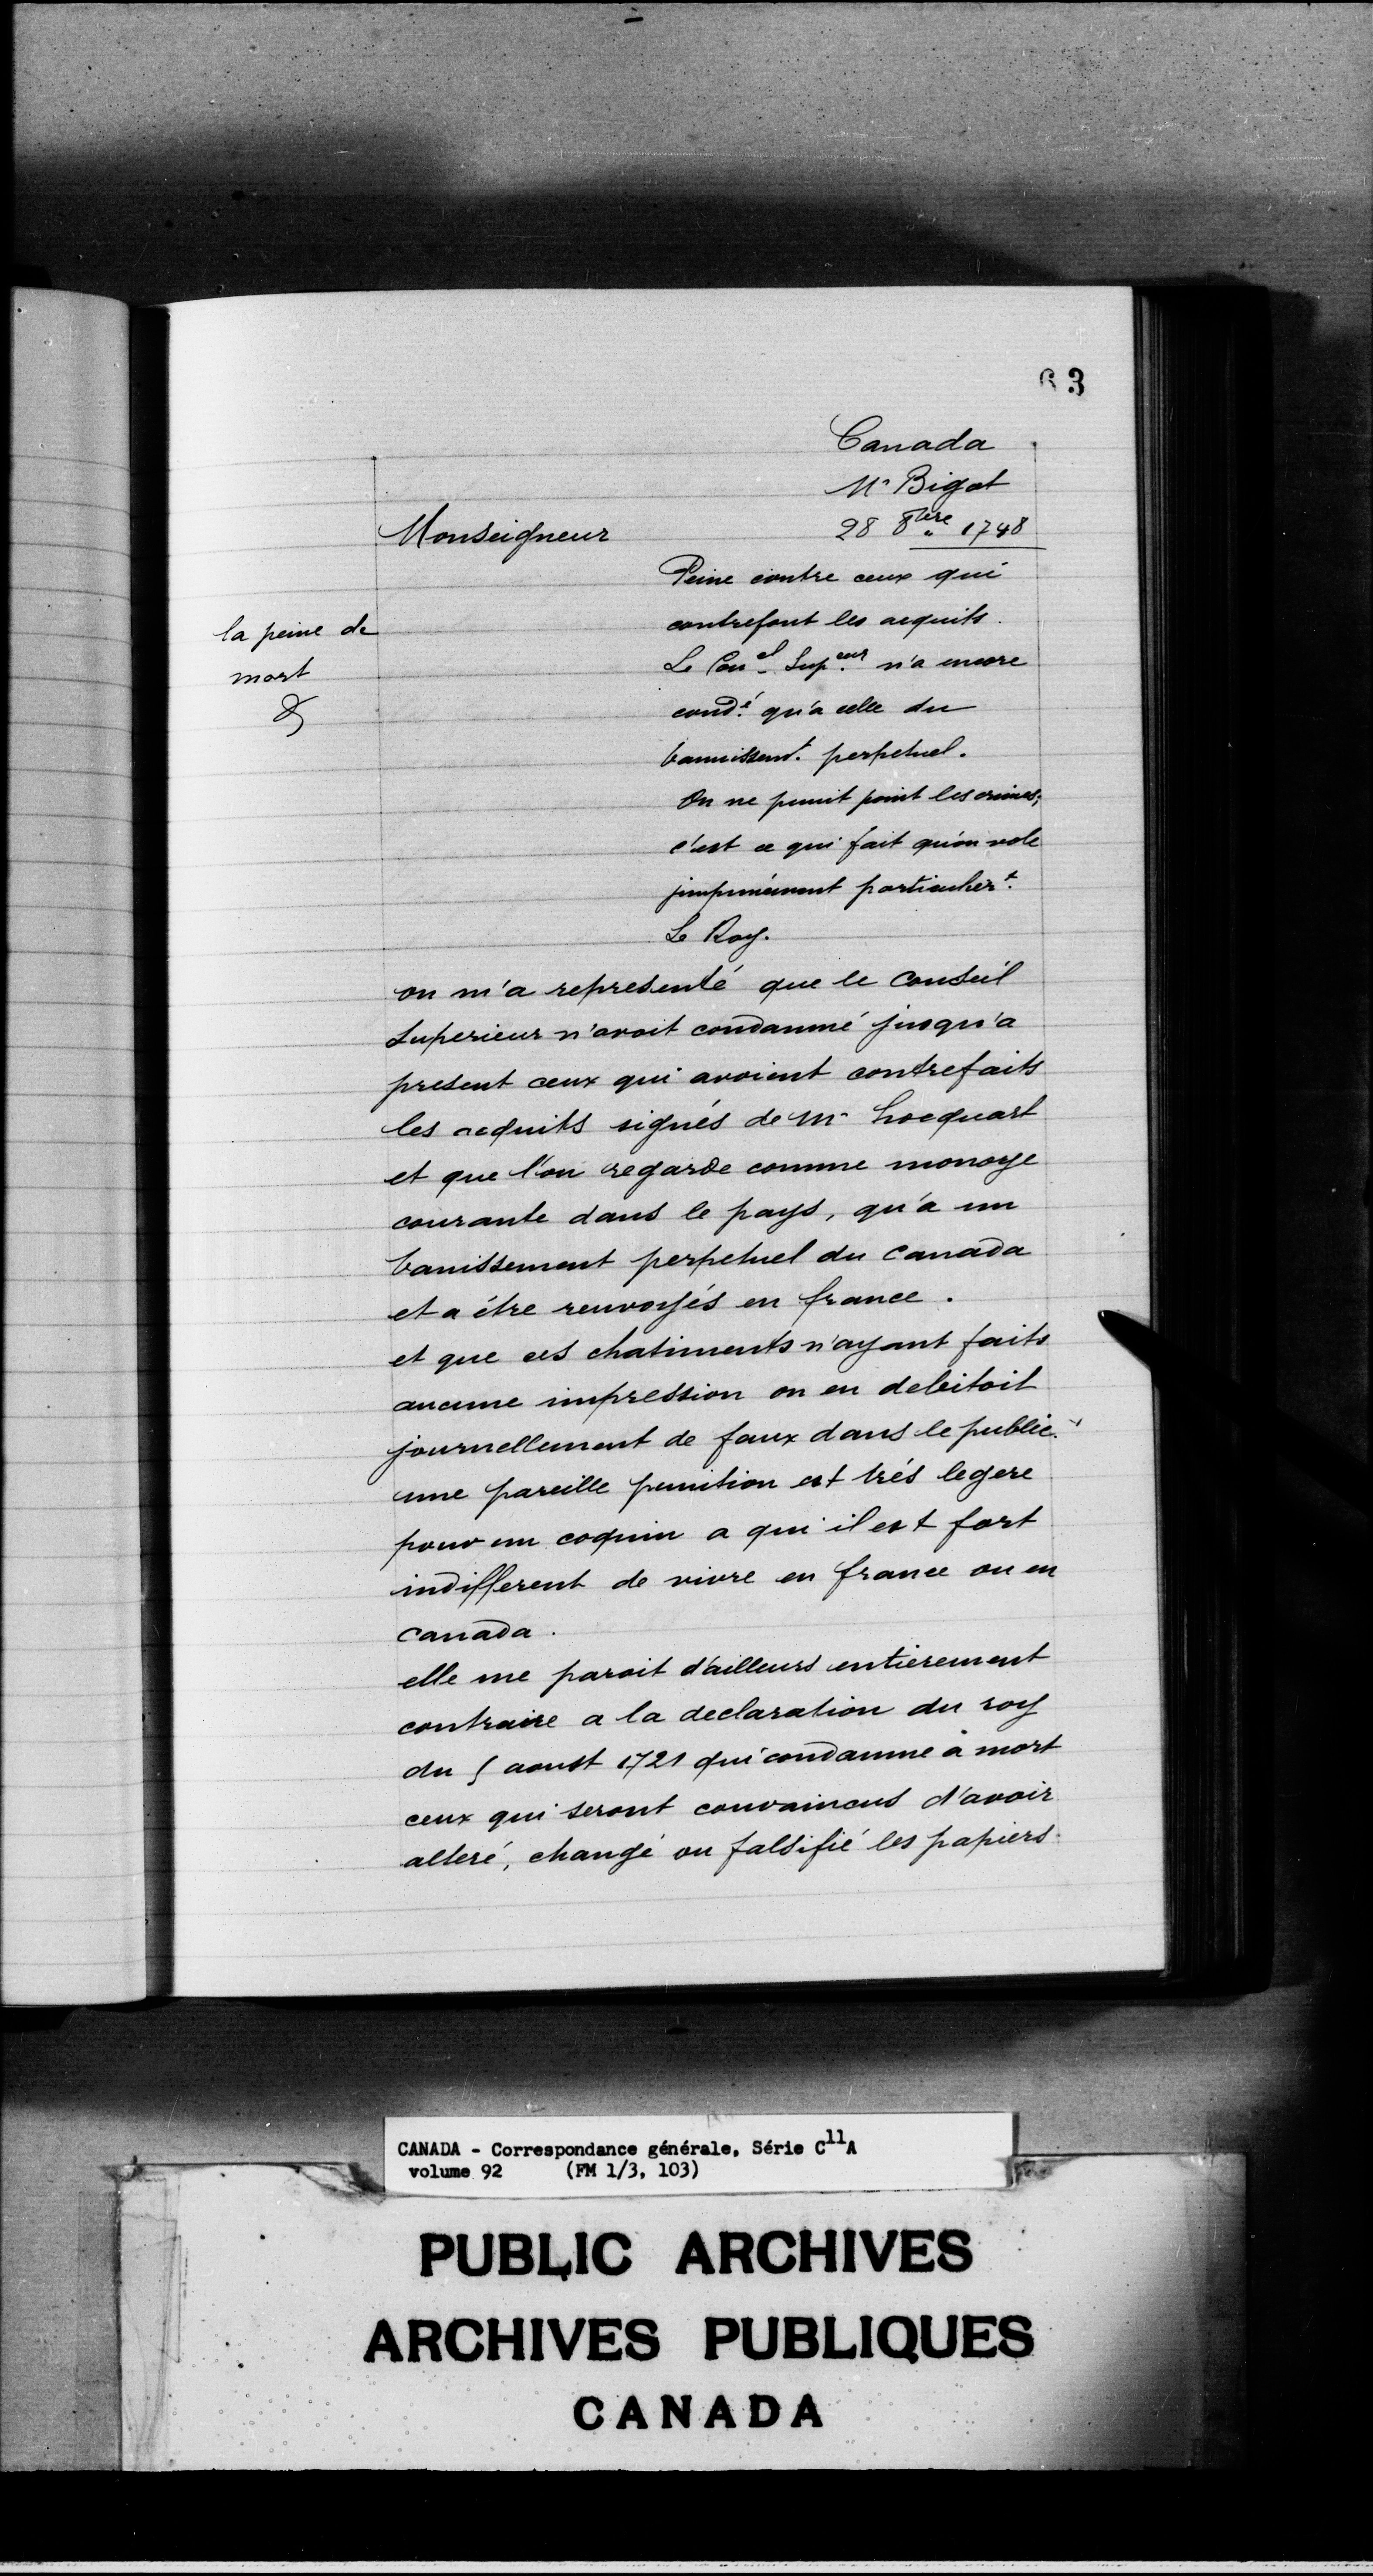 63
Canada
Mr Bigot
28 8bre 1748
Monseigneur
Peine contre ceux qui
contrefont les acquits.
la peine de
mort
Le Conel Supeur n'a encore
condé qu'a celle du
bannissemt. perpetuel.
On ne punit point les crimes;
c'est ce qui fait qu'on vole
jmpunément particuliert.
Le Roy.
on m'a representé que le Conseil
Superieur n'avoit condamné jusqu'a
present ceux qui avoient contrefaits
les acquits signés de Mr hocquart
et que l'on regarde comme monoye
courante dans le pays, qu'a un
banissement perpetuel du Canada
et a étre renvoyés en france.
et que ces chatiments n'ayant faits
aucune impression on en debitoit
journellement de faux dans le public.
une pareille punition est trés legere
pour un coquin a qui il est fort
indifferent de vivre en france ou en
Canada.
elle me paroit d'ailleurs entierement
contraire a la declaration du roy
du 5 aoust 1721 qui condamne à mort
ceux qui seront convaincus d'avoir
alteré, changé ou falsifié les papiers
CANADA - Correspondance générale, Série C11A
volume 92 (FM 1/3, 103)
PUBLIC ARCHIVES
ARCHIVES PUBLIQUES
CANADA